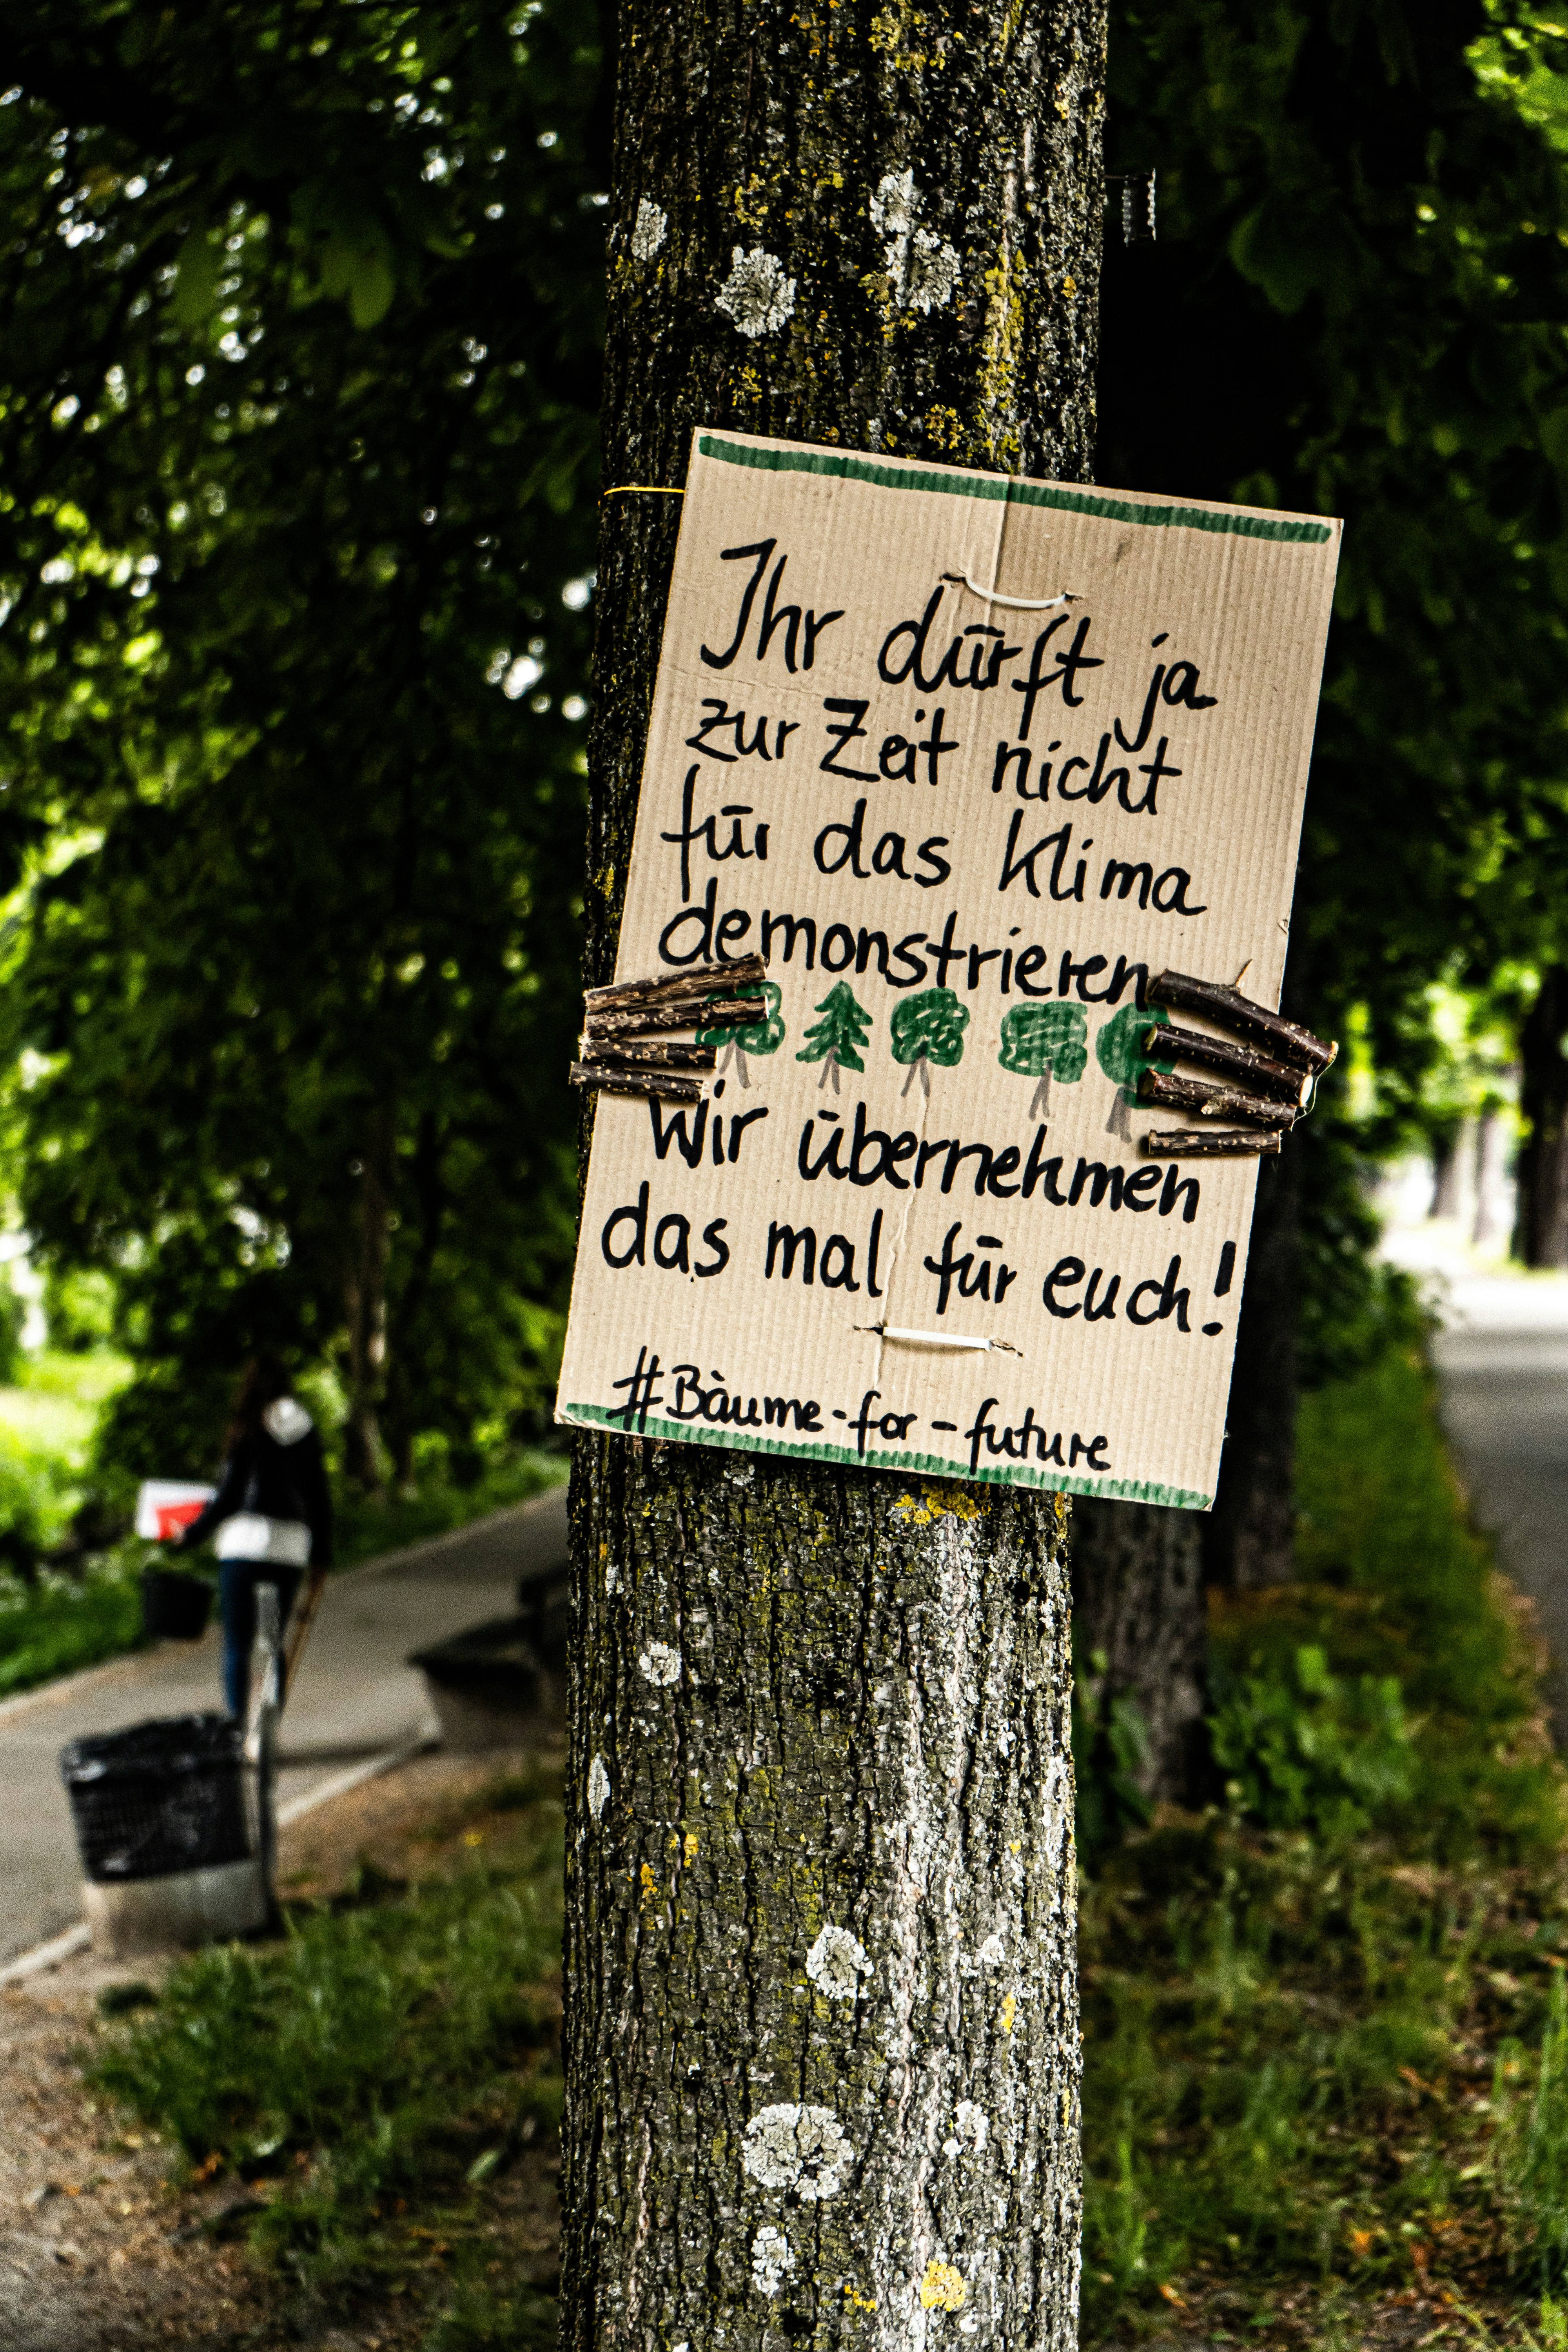 Ihr dürft ja
zur Zeit nicht
für das Klima
demonstrieren
Wir übernehmen
das mal für euch!
#Bäume-for-future